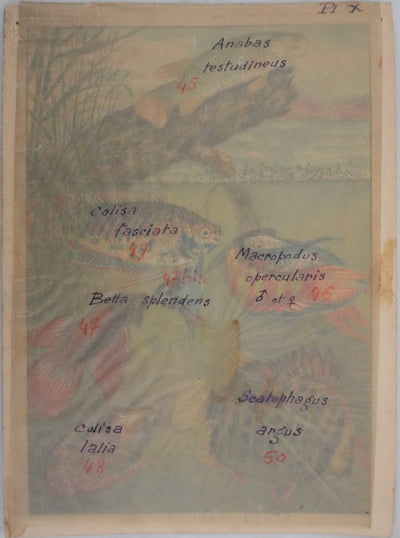 Pl. X
Anabas
testudineus
45
Colisa
fasciata
49
47 bis
Macropodus
opercularis
♂ et ♀ 46
Betta splendens
47
Scatophagus
argus
50
Colisa
lalia
48